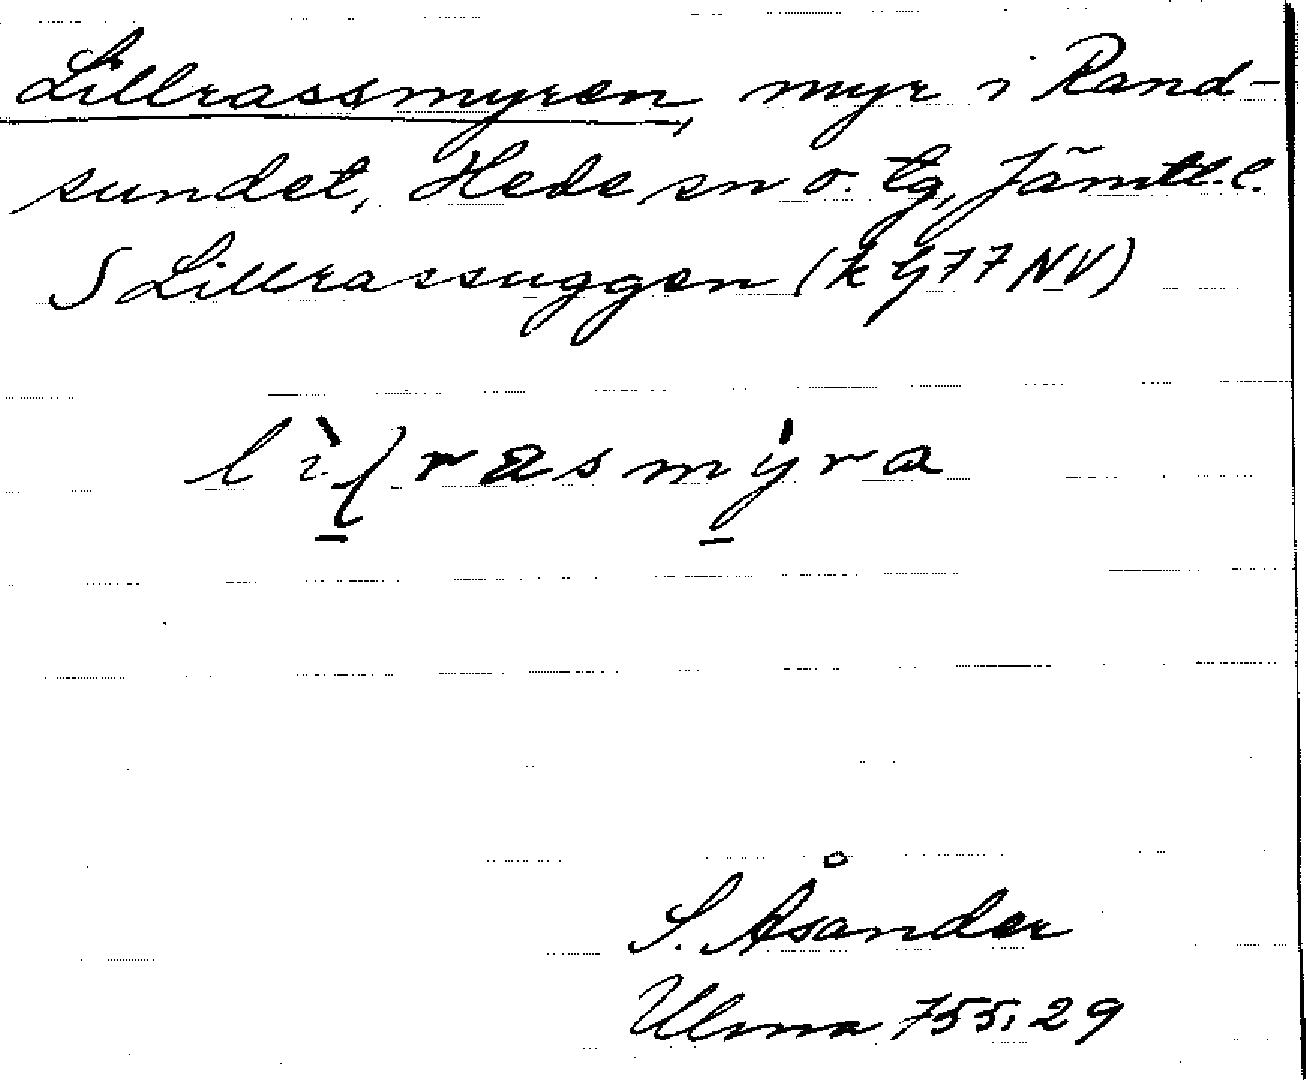 Lillrassmyren, myr i Rand-
sundet, Hede sn o. tg, Jämtl. l.
S Lillrassuggen (k 77 NV)
S. Åsander
Ulma 755:29